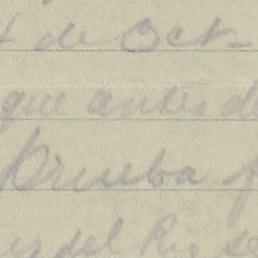 de Oct-
que antes de
Prueba
del Rio se